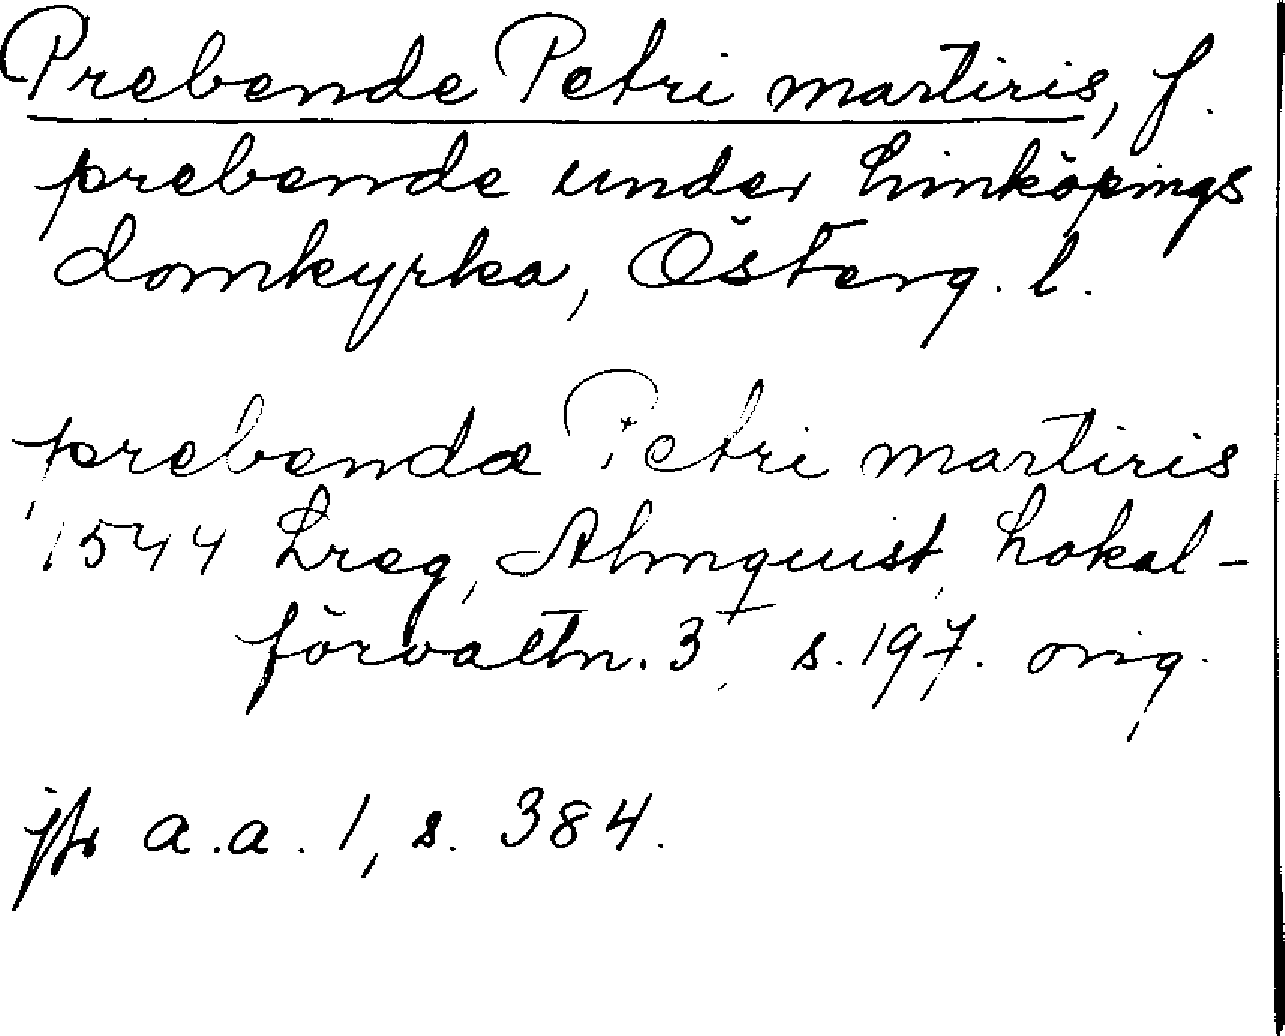 Prebende Petri martiris, f.
prebende under Linköpings
domkyrka, Österg. l.
prebendæ Petri martiris
1544 Lreg, Almquist, Lokal-
förvaltn. 3, s. 197. orig.
jfr a.a. 1, s. 384.